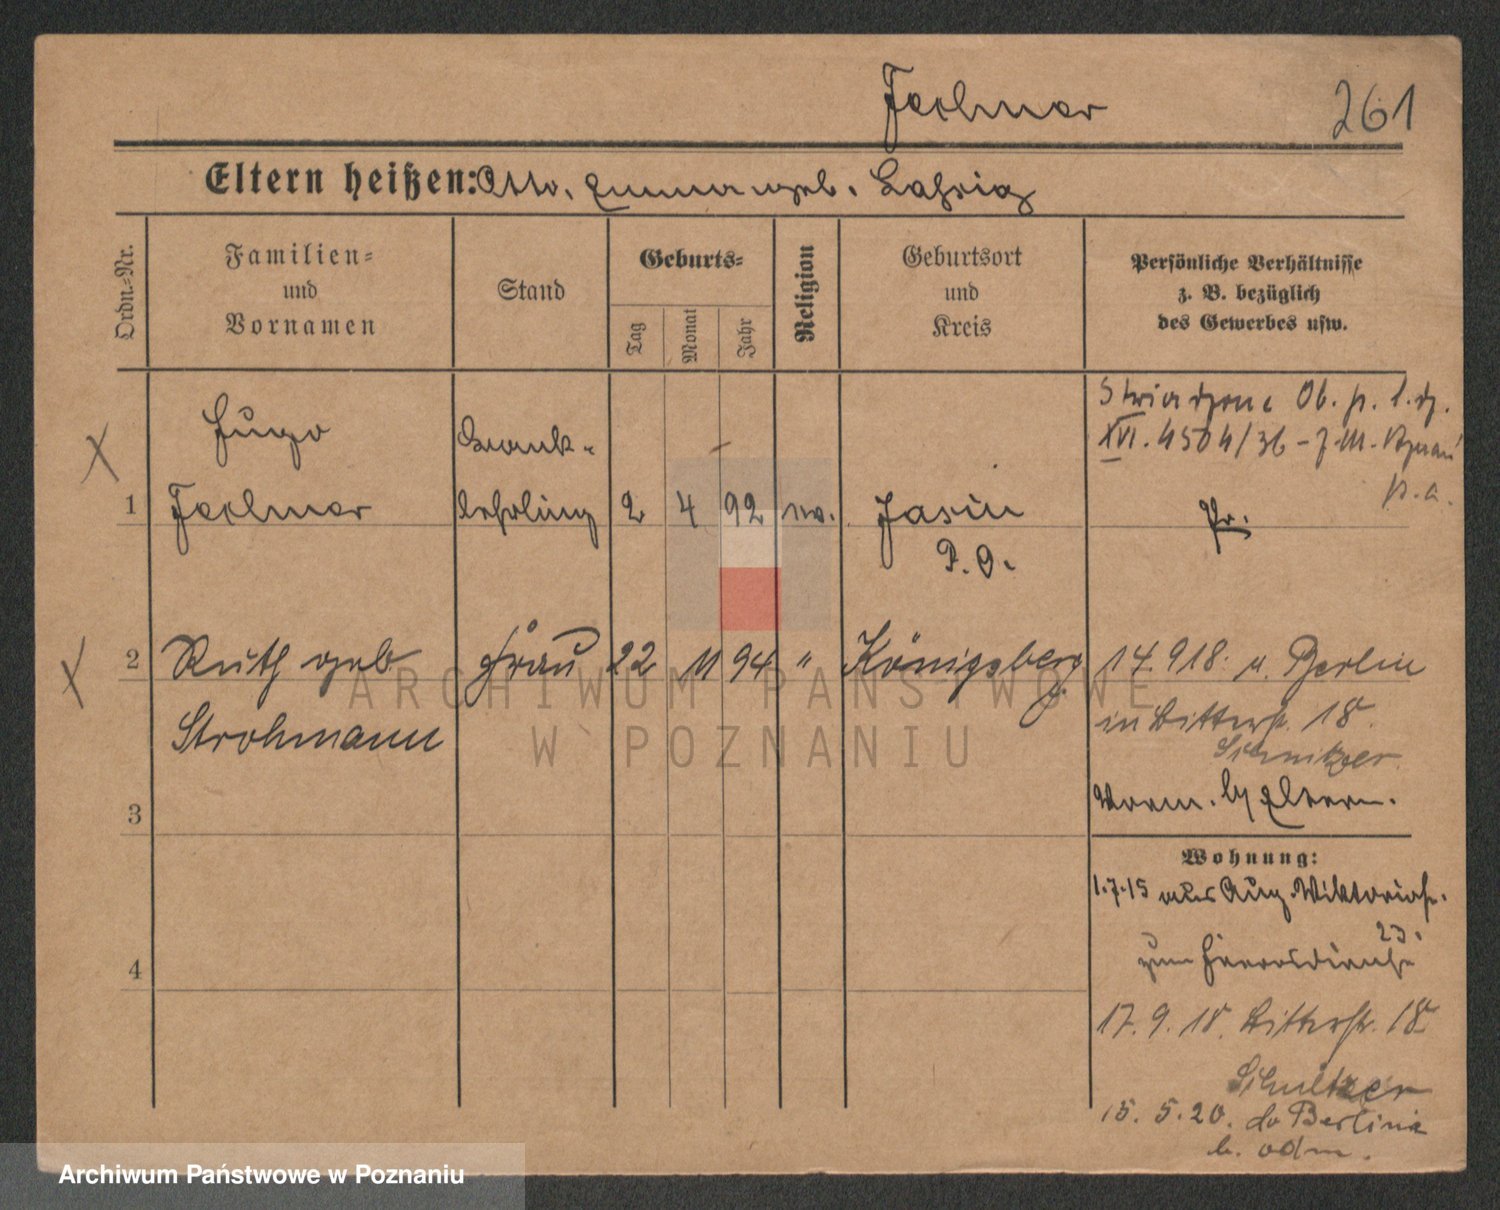 Feclmer 261
Eltern heißen: Otto, Emma geb. Lahrig
Ordn.-Nr.
Familien=
und
Vornamen
Stand
Geburts=
Tag Monat Jahr
Religion
Geburtsort
und
Kreis
Persönliche Verhältnisse
z. B. bezüglich
des Gewerbes usw.
Ob. p. l. dz.
XVI. 4504/36 - Z. M. Poznań
p. a.
Hugo Bank-
1 lehrling 2 4 92 ev. Jasin Pr.
P. O.
2 Ruth geb Frau 22 11 94 " Königsberg Berlin
Strohmann in Ritterstr. 18
Schnitzer
3 Eltern.
Wohnung:
1.7.15 Aug. Wiktoriastr.
23.
4 zum Heeresdienst
17. 9. 18 Ritterstr. 18
15. 5. 20. do Berlina
b. odm.
ARCHIWUM PAŃSTWOWE
W POZNANIU
Archiwum Państwowe w Poznaniu